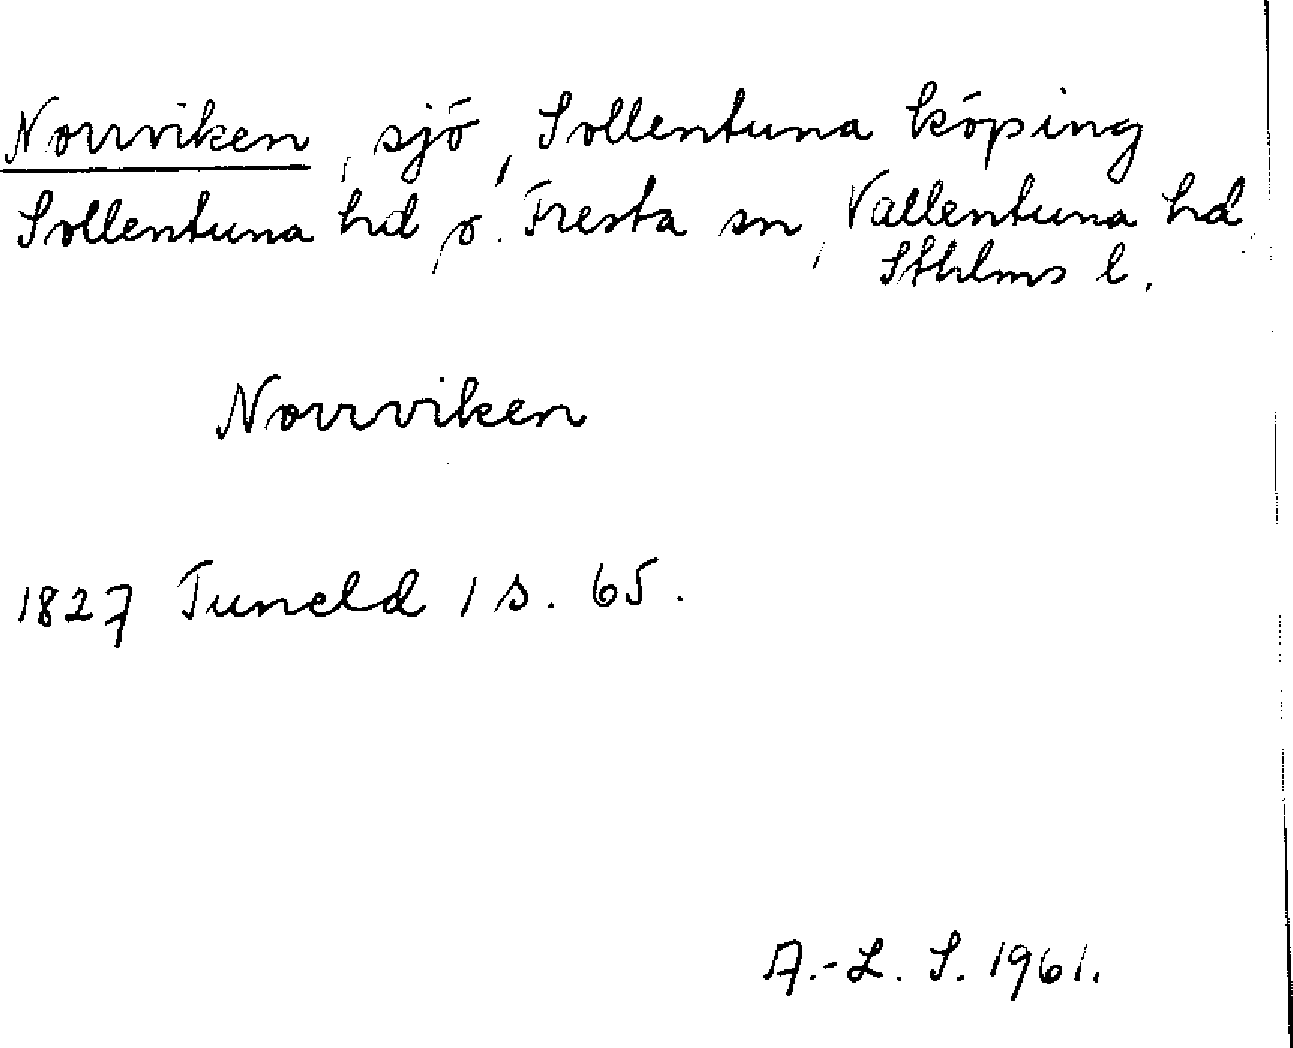 Norrviken, sjö, Sollentuna köping
Sollentuna hd, o. Fresta sn, Vallentuna hd,
Sthlms l.
Norrviken
1827 Tuneld 1 s. 65.
A.-L. S. 1961.